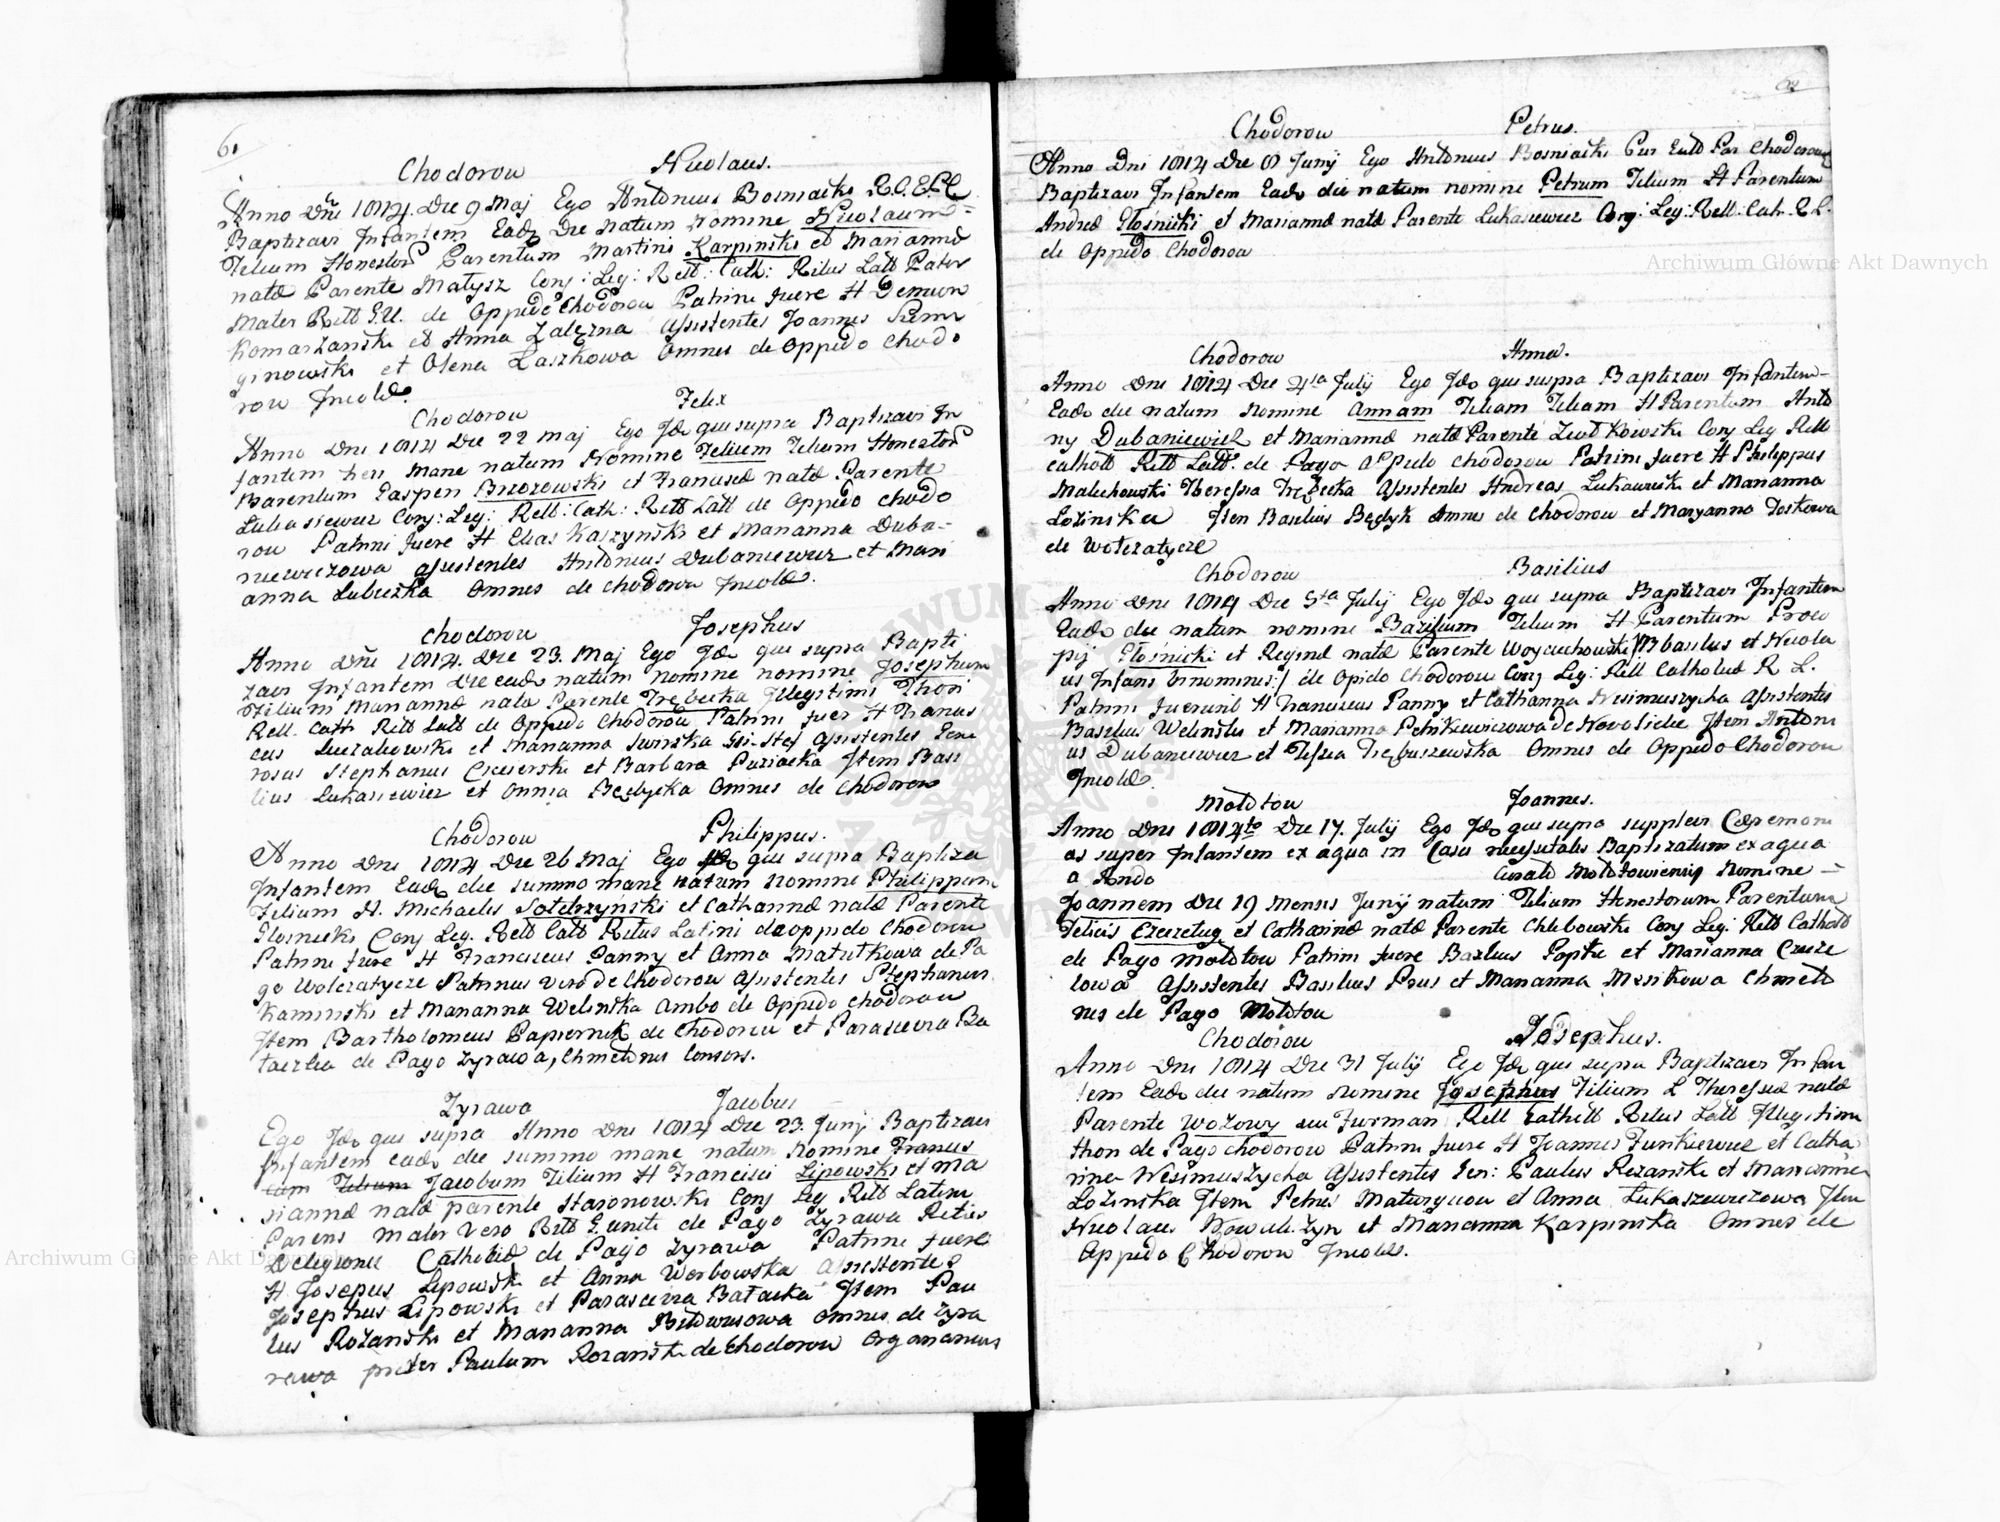 61
Chodorow Nicolaus.
Anno Dni 1814. Die 9 Maj Ego Antonius Bosniacki R.C.E.P.C
Baptizavi Infantem Eadē Die natum Nomine Nicolaum
Filium Honestor Parentum Martini Karpinski et Mariannæ
natæ Parente Matysz Conj: Leg: Rell: Cath: Ritus Latt Pater
Mater Ritt G.U. de Oppido Chodorow Patrini fuere H Demion
Komarzanski et Anna Zalezna Assistentes Joannes Siemi
ginowski et Olena Laszkowa Omnes de Oppido Chodo
row Incolæ.
Chodorow Felix
Anno Dni 1814 Die 22 Maj Ego Idē qui supra Baptizavi In
fantem heri mane natum Nomine Felicem Filium Honestor
Parentum Casperi Brzozowski et Franciscæ natæ Parente
Lukasiewicz Conj: Leg: Rell: Cath: Ritt Latt de Oppido Chodo
row Patrini fuere H Elias Kaszynski et Marianna Duba-
niewiczowa Assistentes Antonius Dubaniewicz et Mari
anna Lubiezka Omnes de Chodorow Incolæ.
Chodorow Josephus
Anno Dni 1814. Die 23. Maj Ego Idē qui supra Bapti
zavi Infantem Die eadē natum nomine nomine Josephum
Filium Mariannæ nata Parente Trębecka Illegitimi Thori
Rell. Cath Ritt Latt de Oppido Chodorow Patrini fuer H Francis
cus Kuczabowski et Marianna Swirzka Assistentes Gene
rosus Stephanus et Barbara Puziacka Item Basi
lius Lukasiewicz et Omnes de Chodorow
Chodorow Philippus.
Anno Dni 1814 Die 26 Maj Ego Idē qui supra Baptiza
Infantem Eadē die summo mane natum Nomine Philippum
Filium H. Michaelis et Catharinæ natæ Parente
Glosnicki Conj Leg. Rell Catt Ritus Latini de oppido Chodorow
Patrini fuere H Franciscus Panny et Anna Matutkowa de Pa
go Wolczatycze Patrinus vero de Chodorow Assistentes Stephanus
Kaminski et Marianna Welinska Ambo de Oppido Chodorow
Item Bartholomeus Papiernik de Chodorow et Parascevia Ba
taiczka de Pago Zyrawa, Chmetonis Consors.
Zyrawa Jacobus
Ego Idē qui supra Anno Dni 1814 Die 23. Junj Baptizavi
Infantem eadē die summo mane natum Nomine Francis
cum Filium Jacobum Filium H Francisci Lipowski et Ma
riannæ natæ parente Haronowski Conj Leg Ritt Latini
Parens Mater Vero Ritt G.uniti de Pago Zyrawa
Religionis Catholicæ de Pago Zyrawa Patrini fuere
H Josepus Lipowski et Anna Werbowska Assistentes
Josephus Lipowski et Parascevia Bataicka Item Pau
lus Rożański et Marianna omnes de Zyra
rawa præter Paulum Rozanski de Chodorow Organarius
62
Chodorow Petrus.
Anno Dni 1814 Die 8 Junij Ego Antonius Bosniacki Cur Par Chodorow
Baptizavi Infantem Eadē die natum nomine Petrum Filium H Parentum
Andreæ Głośnicki et Mariannæ natæ Parente Lukasiewicz Conj: Leg: Rell: Cath. R L.
de Oppido Chodorow
Chodorow Anna.
Anno Dni 1814 Die 4ta July Ego Idē qui supra Baptizavi Infantem-
Eadē die natum nomine Annam Filiam Filiam H Parentum Anto
ny Dubaniewicz et Mariannæ natæ Parente Conj Leg Rell
Catholl Ritt Latt. de Pago Oppido Chodorow Patrini fuere H Philippus
Malichowski Theressia Trębecka Assistentes Andreas et Marianna
Lozinska Item Basilius Będyk Omnes de Chodorow et Maryanna
de Wolczatycze
Chodorow Basilius
Anno Dni 1814 Die 5ta Julij Ego Idē qui supra Baptizavi Infantem
Eadē die natum nomine Bazilium Filium H Parentum Proco
pij Głośnicki et Reginæ natæ Parente Woyciechowski /: Basilius et Nicola
us Infans binominis :/ de Opido Chodorow Conj Leg: Rell Catholicæ R L.
Patrini fuerunt H Franciscus Panny et Catharina Nesimuszycha Assistentes
Basilius Welinski et Marianna Petrikiewiczowa de Item Antoni
us Dubaniewicz et Omnes de Oppido Chodorow
Incolæ.
Mołotow Joannes.
Anno Dni 1814to Die 17. Julij Ego Idē qui supra supplevi Cæremoni
as super Infantem ex aqua in Casu necessitatis Baptizatum ex aqua
a Rndo Curato Molotowiensij Nomine -
Joannem Die 19 Mensis Junij natum Filium Honestorum Parentum
Felicis et Catharinæ natæ Parente Chlebowski Conj Leg: Ritt Catholl
de Pago Molotow Patrini fuere Bazilius Popko et Marianna
Assistentes Basilius Prus et Marianna Chmeto
nes de Pago Mołotow
Chodorow Josephus.
Anno Dni 1814 Die 31 Julij Ego Idē qui supra Baptizavi Infan
tem Eadē die natum nomine Josephus Filium L Theressiæ natæ
Parente Wozowy seu Furman Rell Cathett Ritus Latt Illegitimi
thori de Pago Chodorow Patrini fuere H Joannes Funkiewicz et Catha
rina Nesimuszycha Assistentes Gen: Paulus Rozanski et Marianna
Lozinska Item Petrus et Anna Lukaszewiczowa Item
Nicolaus et Marianna Karpinska Omnes de
Oppido Chodorow Incolæ.
Archiwum Główne Akt Dawnych
Archiwum Główne Akt Dawnych